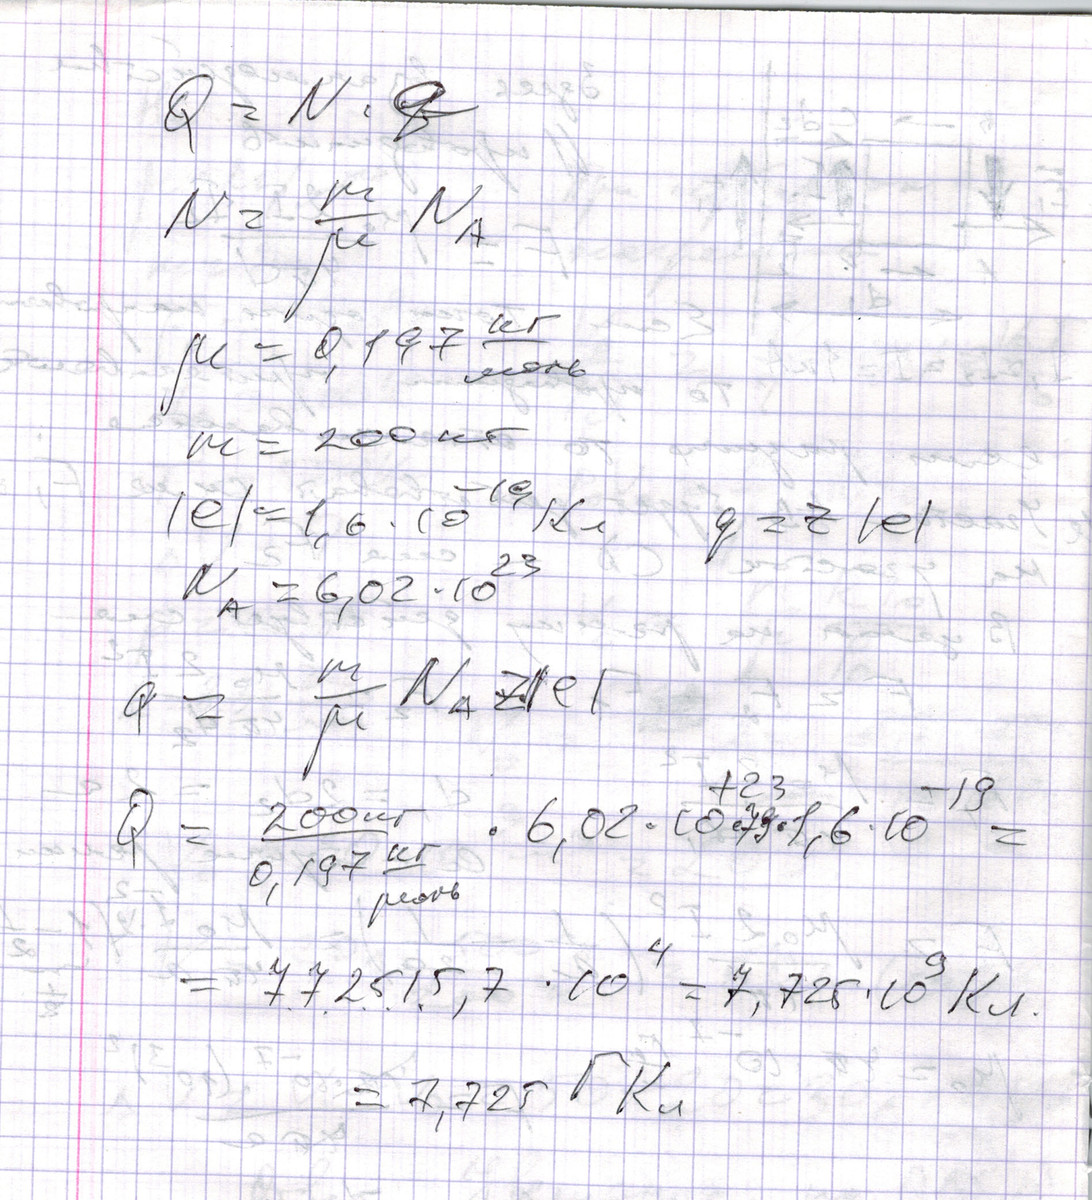 Q = N · q
N = m/μ N_A
μ = 0,197 кг/моль
m = 200 кг
|e| = 1,6 · 10^-19 Кл q = z |e|
N_A = 6,02 · 10^23
q = m/μ N_A z|e|
Q = 200кг / 0,197 кг/моль · 6,02 · 10^+23 · 79 · 1,6 · 10^-19 =
= 772515,7 · 10^4 = 7,725 · 10^9 Кл.
= 7,725 ГКл